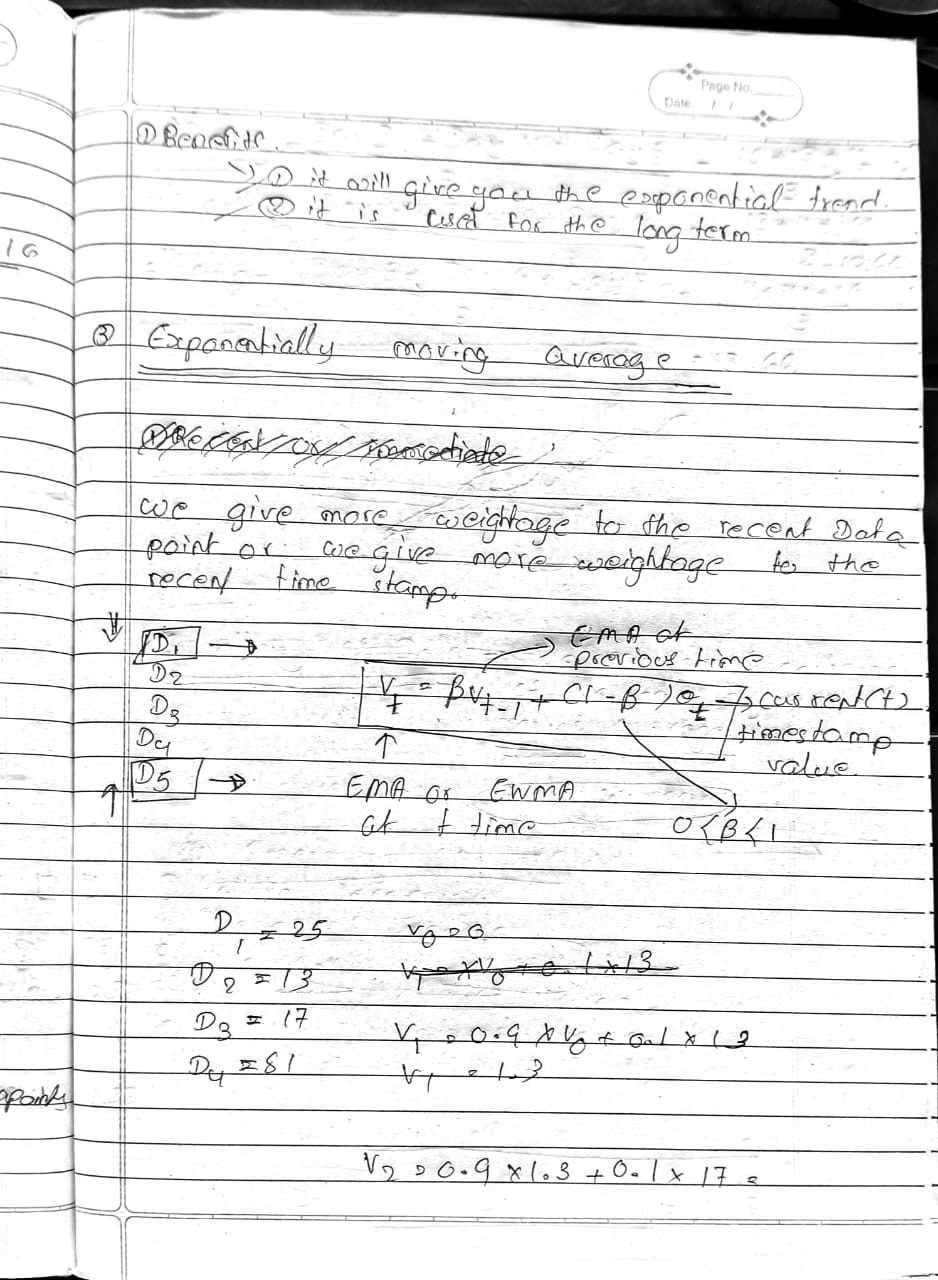 Page No.
Date: / /
① Benefits.
① it will give you the exponential trend.
② it is used for the long term
16
③ Exponentially moving average
we give more weightage to the recent Data
point or we give more weightage to the
recent time stamp.
D1 →
D2
D3
D4
D5 →
EMA at
previous time
V_t = βV_{t-1} + (1-β)θ_t → current(t)
timestamp
value.
EMA or EWMA
at t time
0<β<1
D1 = 25 v0 = 0
D2 = 13
D3 = 17 V1 = 0.9 × V0 + 0.1 × 13
D4 = 81 V1 = 1.3
points
V2 = 0.9 × 1.3 + 0.1 × 17 =